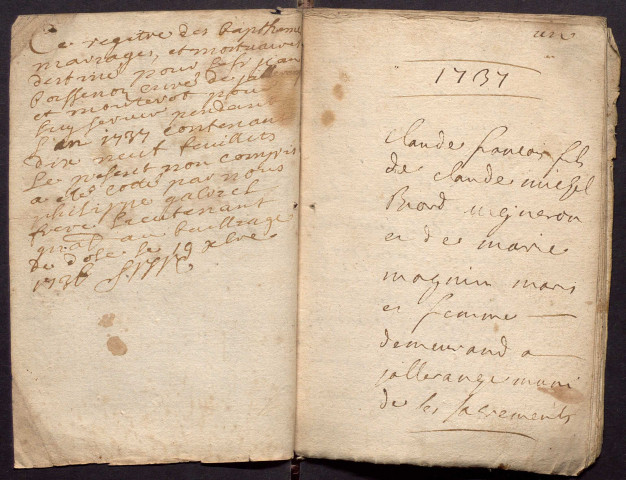 Ce registre des bapthemes
mariages, et mortuaires
destiné pour le sr jean
poissenot curé de
et montevot pour
luy servir pendant
l'an 1737 contenant
dix neuf feuillets
le present non compris
a eté cotté par nous
philippe gabriel
lieutenant
gnal au bailliage
de dole le xbre
1736
un
1737
claude francois fils
de claude michel
Biord vigneron
et de marie
magnin maris
et femme
demeurand a
jallerange muni
de les sacrements